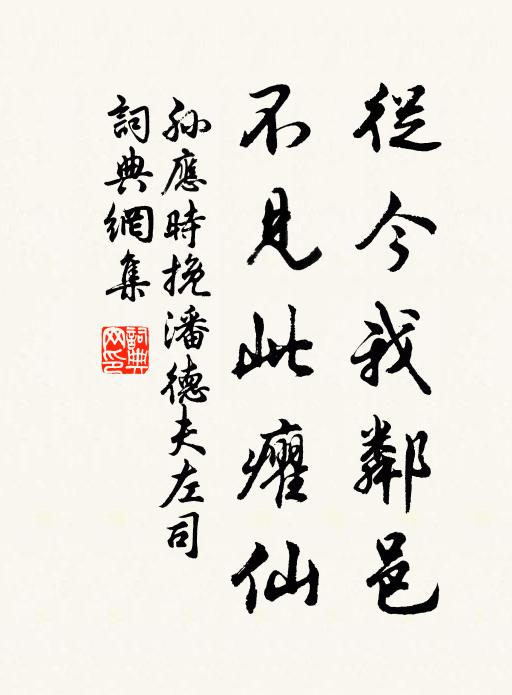 從今我鄰邑
不見此癯仙
孫應時挽潘德夫左司
詞典網集
詞典网印